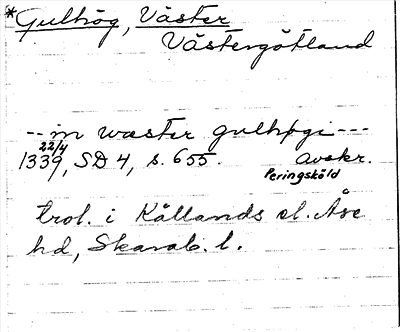 *Gulhög, Väster
Västergötland
-- in wæster gulhøgi ---
22/4
1339, SD 4, s. 655 avskr.
Peringsköld
trol. i Kållands el. Åse
hd, Skarab. l.